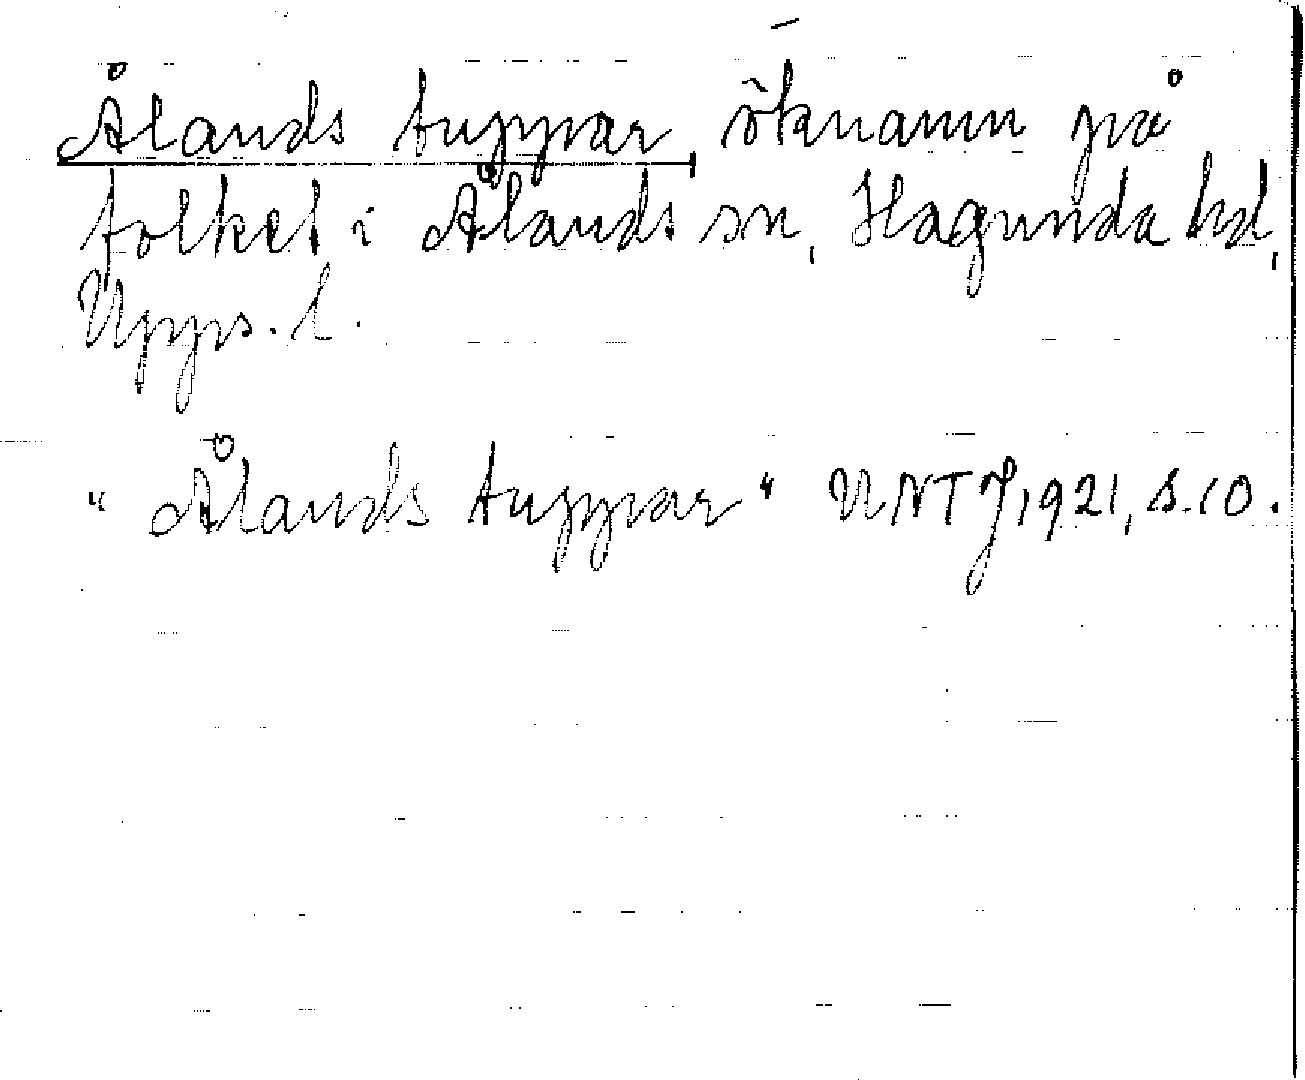 Ålands tuppar, öknamn på
folket i Ålands sn, Hagunda hd,
Upps. l.
"Ålands tuppar" UNT J 1921, s. 10.